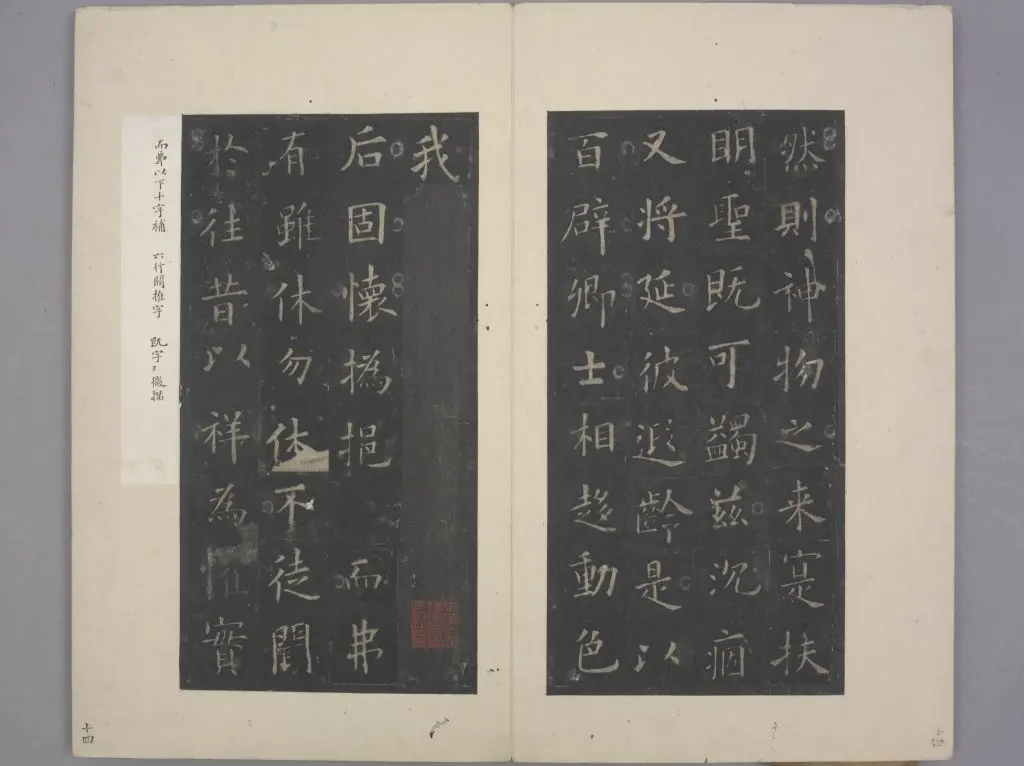 然則神物之来寔扶
眀聖既可蠲兹沉痼
又将延彼遐齡是以
百辟卿士相趍動色
十四
我
后固懐撝挹 而弗
有雖休勿休不徒聞
於徃昔以祥為 實
而弗以下十字補 六行闕推字 字 微描
十四